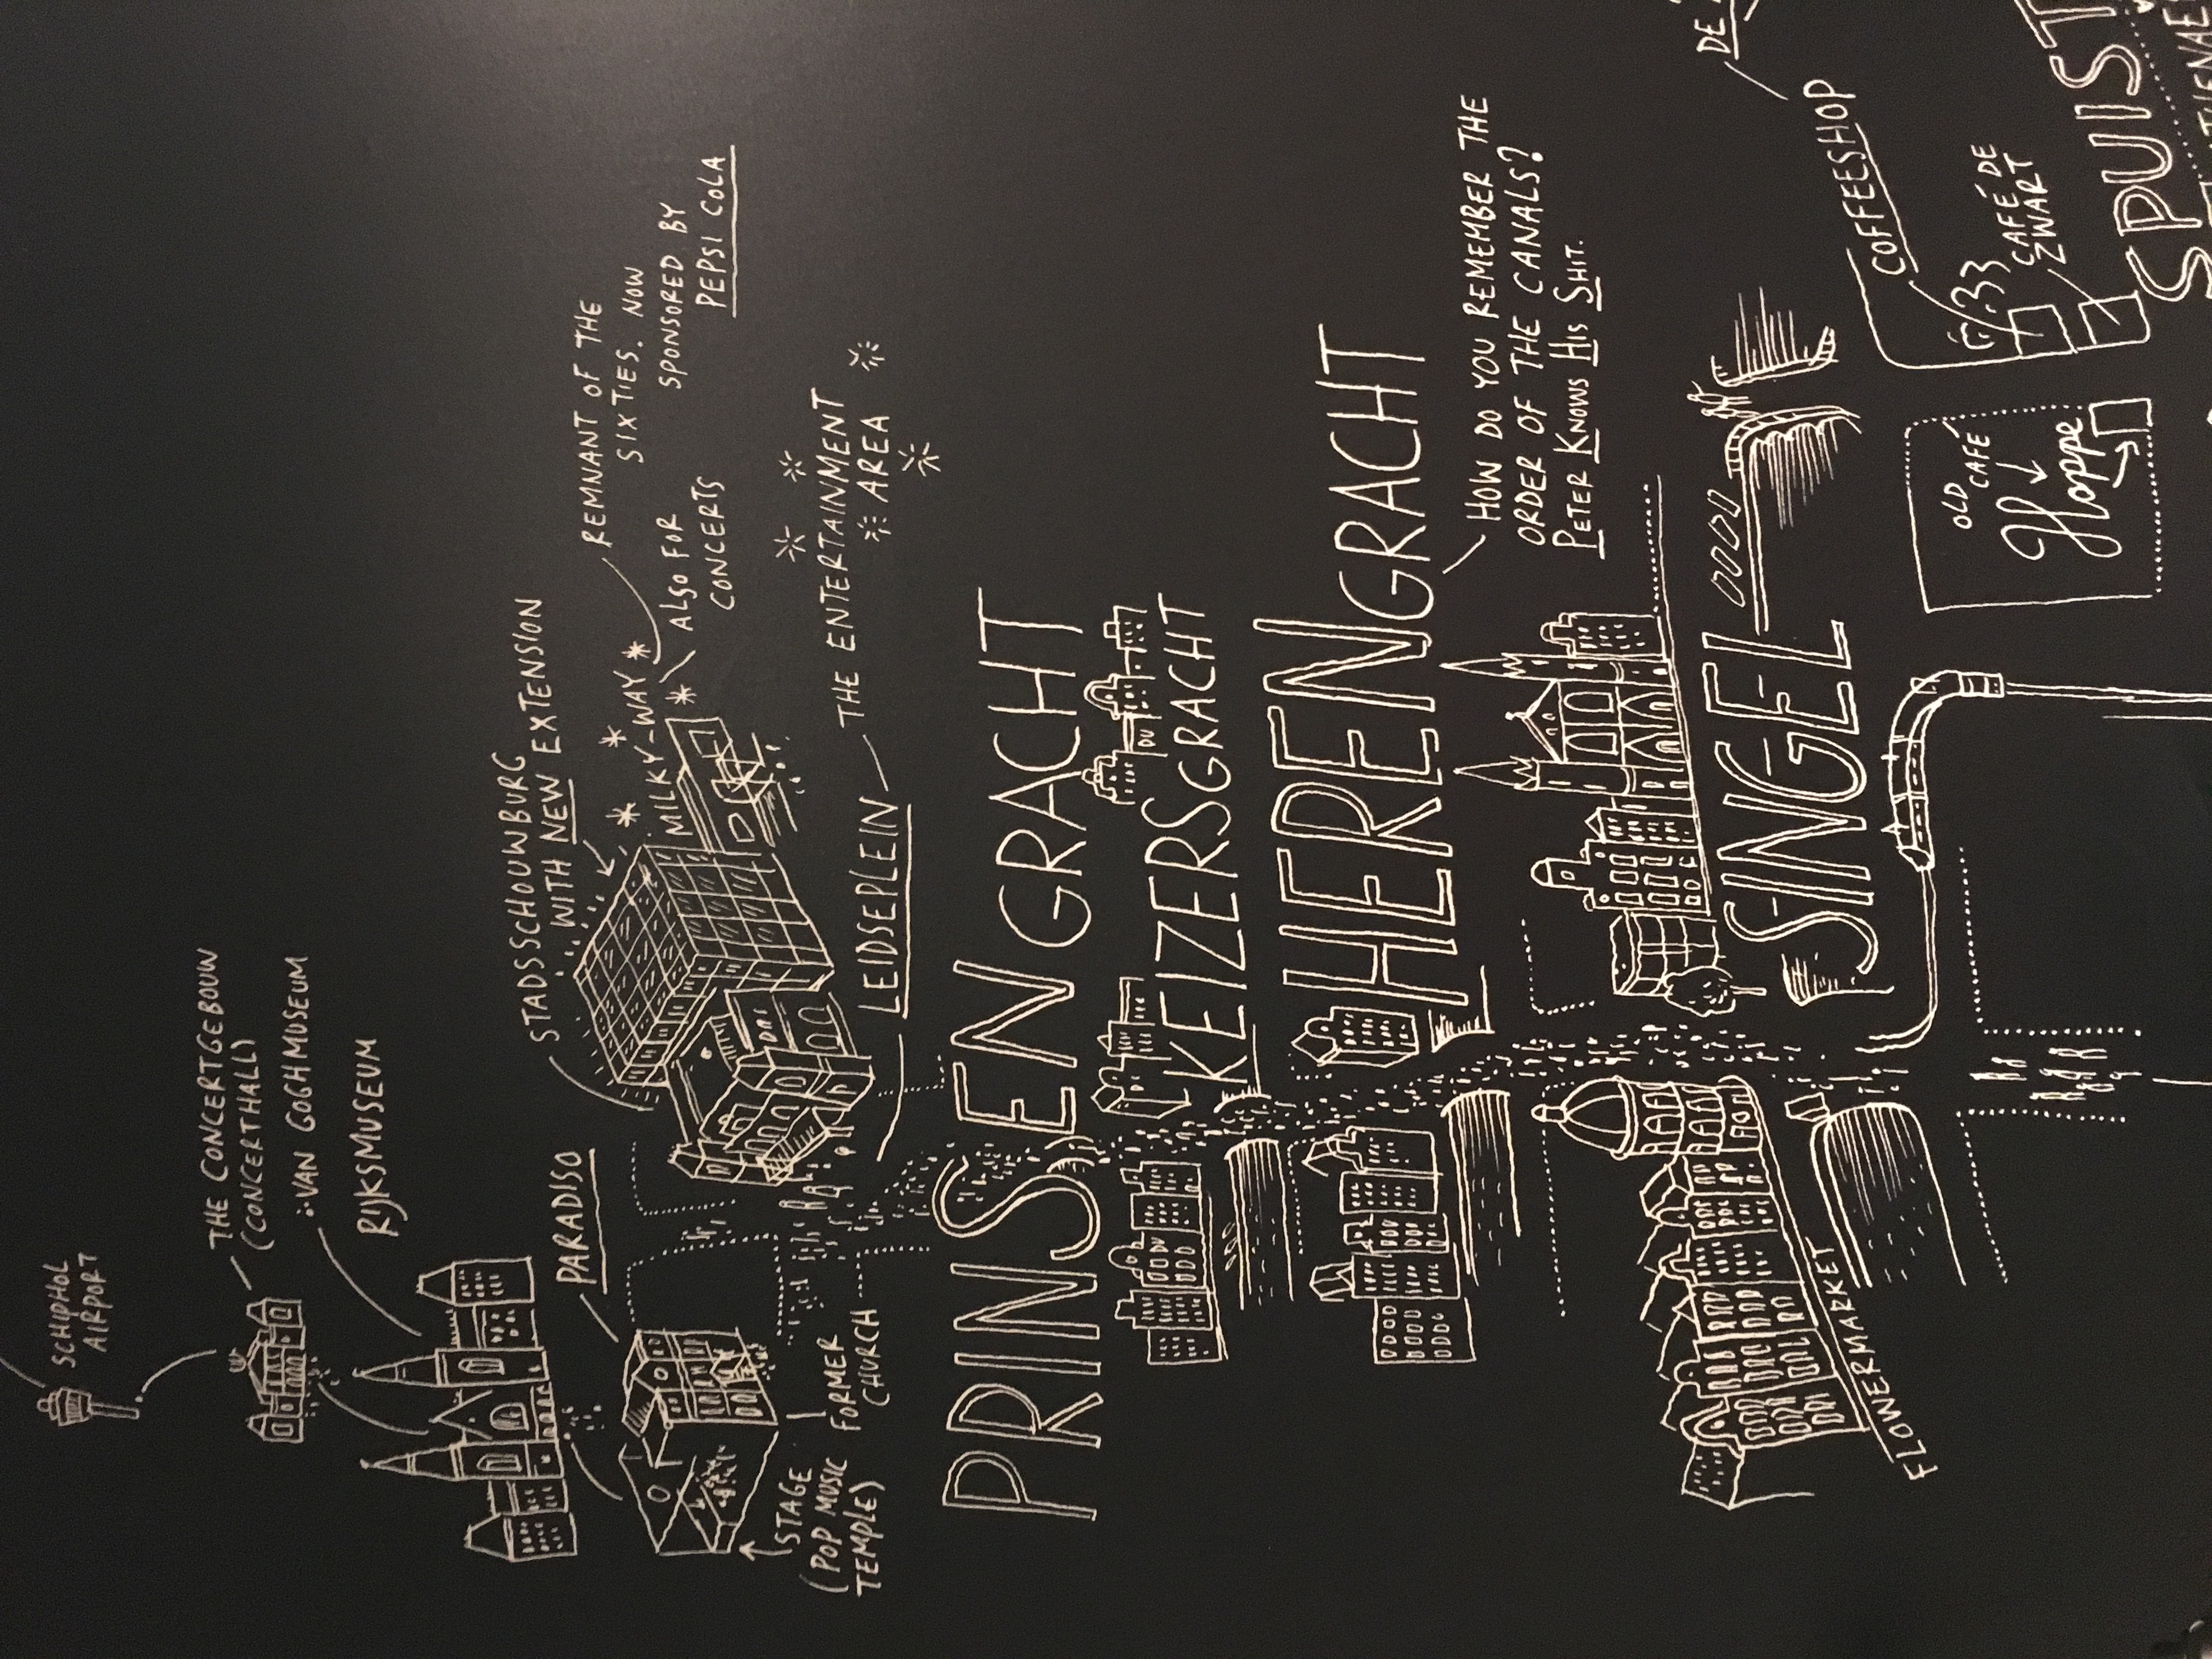 SCHIPHOL
AIRPORT
THE CONCERTGEBOUW
(CONCERTHALL)
VAN GOGH MUSEUM
RIJKSMUSEUM
STADSSCHOUWBURG
WITH NEW EXTENSION
REMNANT OF THE
SIXTIES. NOW
SPONSORED BY
PEPSI COLA
MILKY-WAY
ALSO FOR
CONCERTS
PARADISO
STAGE
(POP MUSIC
TEMPLE)
FORMER
CHURCH
LEIDSEPLEIN
THE ENTERTAINMENT
AREA
PRINSENGRACHT
KEIZERSGRACHT
HERENGRACHT
HOW DO YOU REMEMBER THE
ORDER OF THE CANALS?
PETER KNOWS HIS SHIT.
SINGEL
FLOWERMARKET
DE
COFFEESHOP
33
CAFÉ DE
ZWART
OLD
CAFÉ
Hoppe
SPUIST